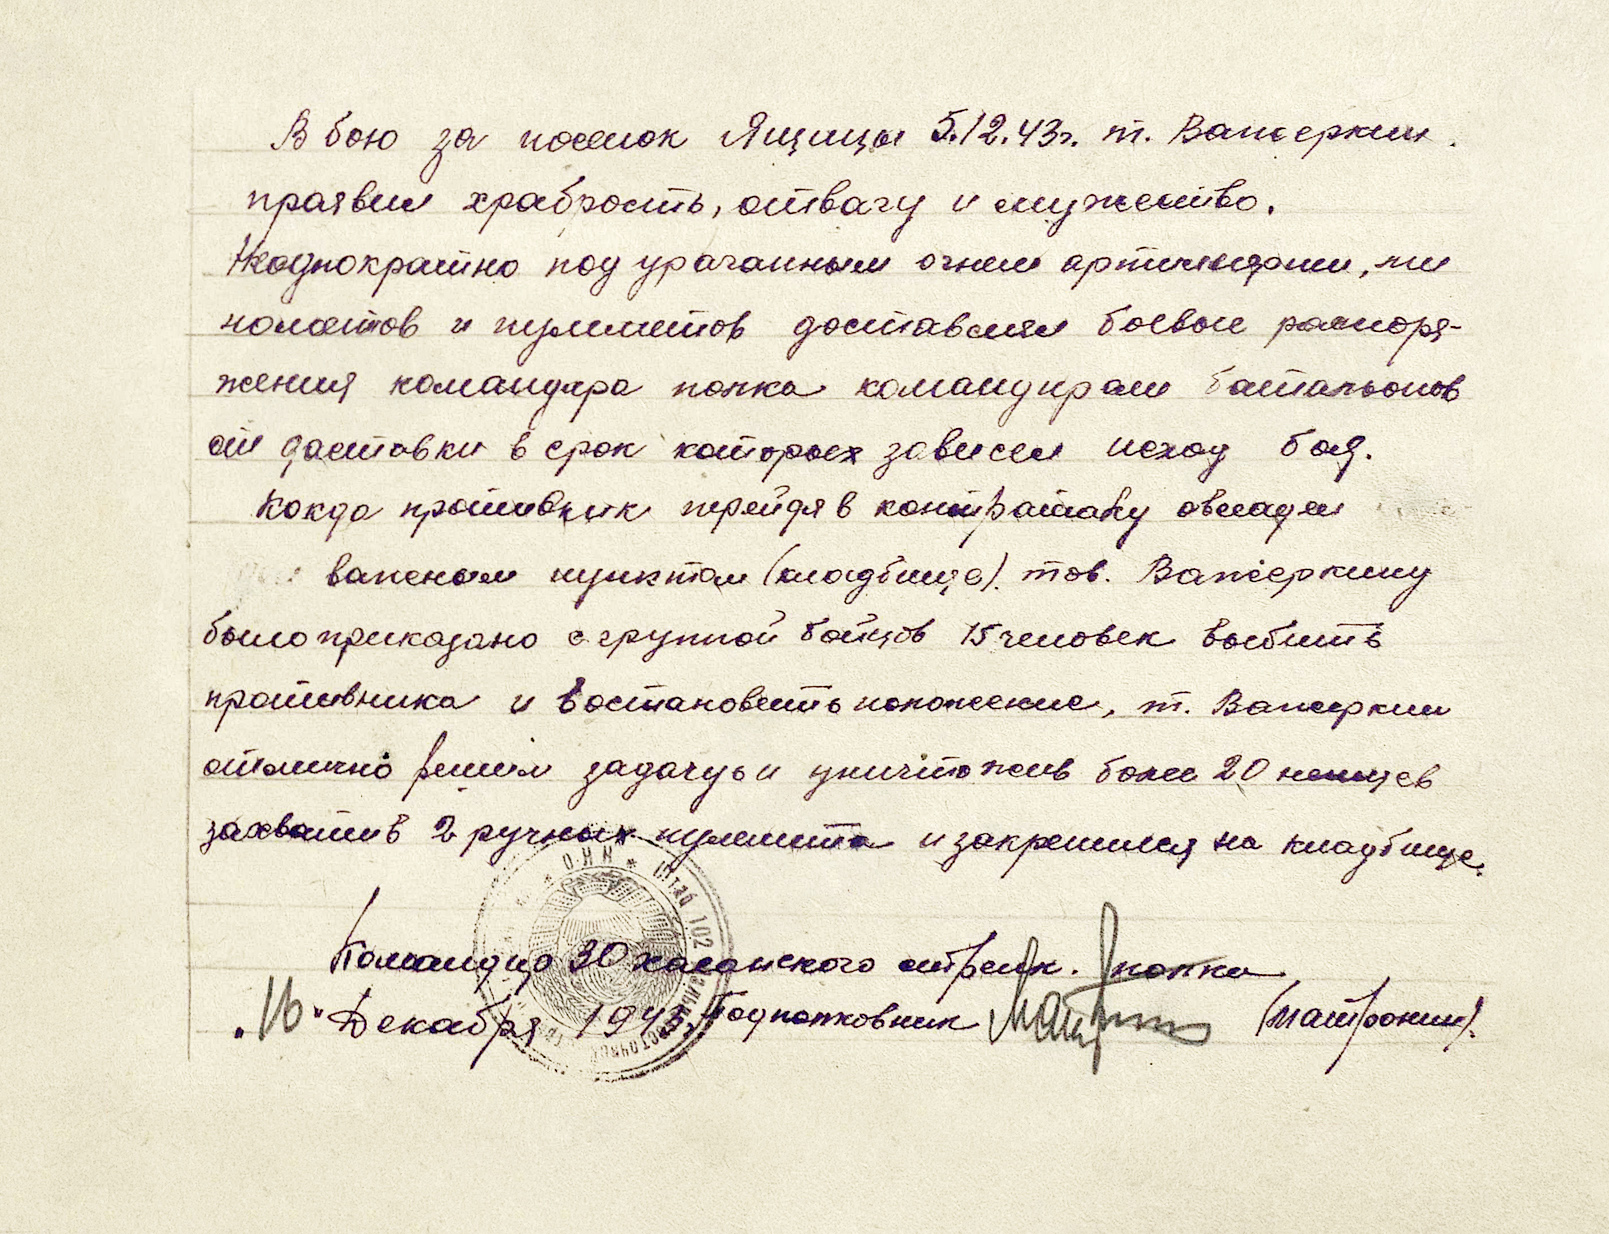 В бою за поселок Ящицы 5.12.43г. т. Важеркин
праявил храбрость, отвагу и мужество.
Неоднократно под ураганным огнем артиллерии, ми
нометов и пулеметов доставлял боевые распоря-
жения командира полка командирам батальонов
от доставки в срок которых зависел исход боя.
Когда противник перейдя в контратаку овладел
важным пунктом (кладбище). тов. Важеркину
было приказано с группой бойцов 15 человек выбить
противника и востановить положение, т. Важеркин
отлично решил задачу и уничтожив более 20 немцев
захватив 2 ручных пулемета и закрепился на кладбище.
Командир 30 хасанского стрелк. полка
"16" Декабря 1943г. Подполковник (Матронин).
НКО * Штаб 102